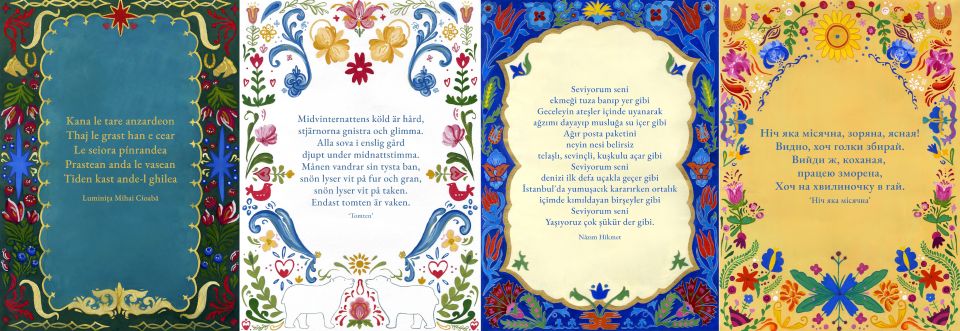 Kana le tare anzardeon
Thaj le grast han e cear
Le seiora pînrandea
Prastean anda le vasean
Tiden kast ande-l ghilea
Luminița Mihai Cioabă
Midvinternattens köld är hård,
stjärnorna gnistra och glimma.
Alla sova i enslig gård
djupt under midnattstimma.
Månen vandrar sin tysta ban,
snön lyser vit på fur och gran,
snön lyser vit på taken.
Endast tomten är vaken.
'Tomten'
Seviyorum seni
ekmeği tuza banıp yer gibi
Geceleyin ateşler içinde uyanarak
ağzımı dayayıp musluğa su içer gibi
Ağır posta paketini
neyin nesi belirsiz
telaşlı, sevinçli, kuşkulu açar gibi
Seviyorum seni
denizi ilk defa uçakla geçer gibi
İstanbul'da yumuşacık kararırken ortalık
içimde kımıldayan birşeyler gibi
Seviyorum seni
Yaşıyoruz çok şükür der gibi.
Nâzım Hikmet
Ніч яка місячна, зоряна, ясная!
Видно, хоч голки збирай.
Вийди ж, коханая,
працею зморена,
Хоч на хвилиночку в гай.
'Ніч яка місячна'